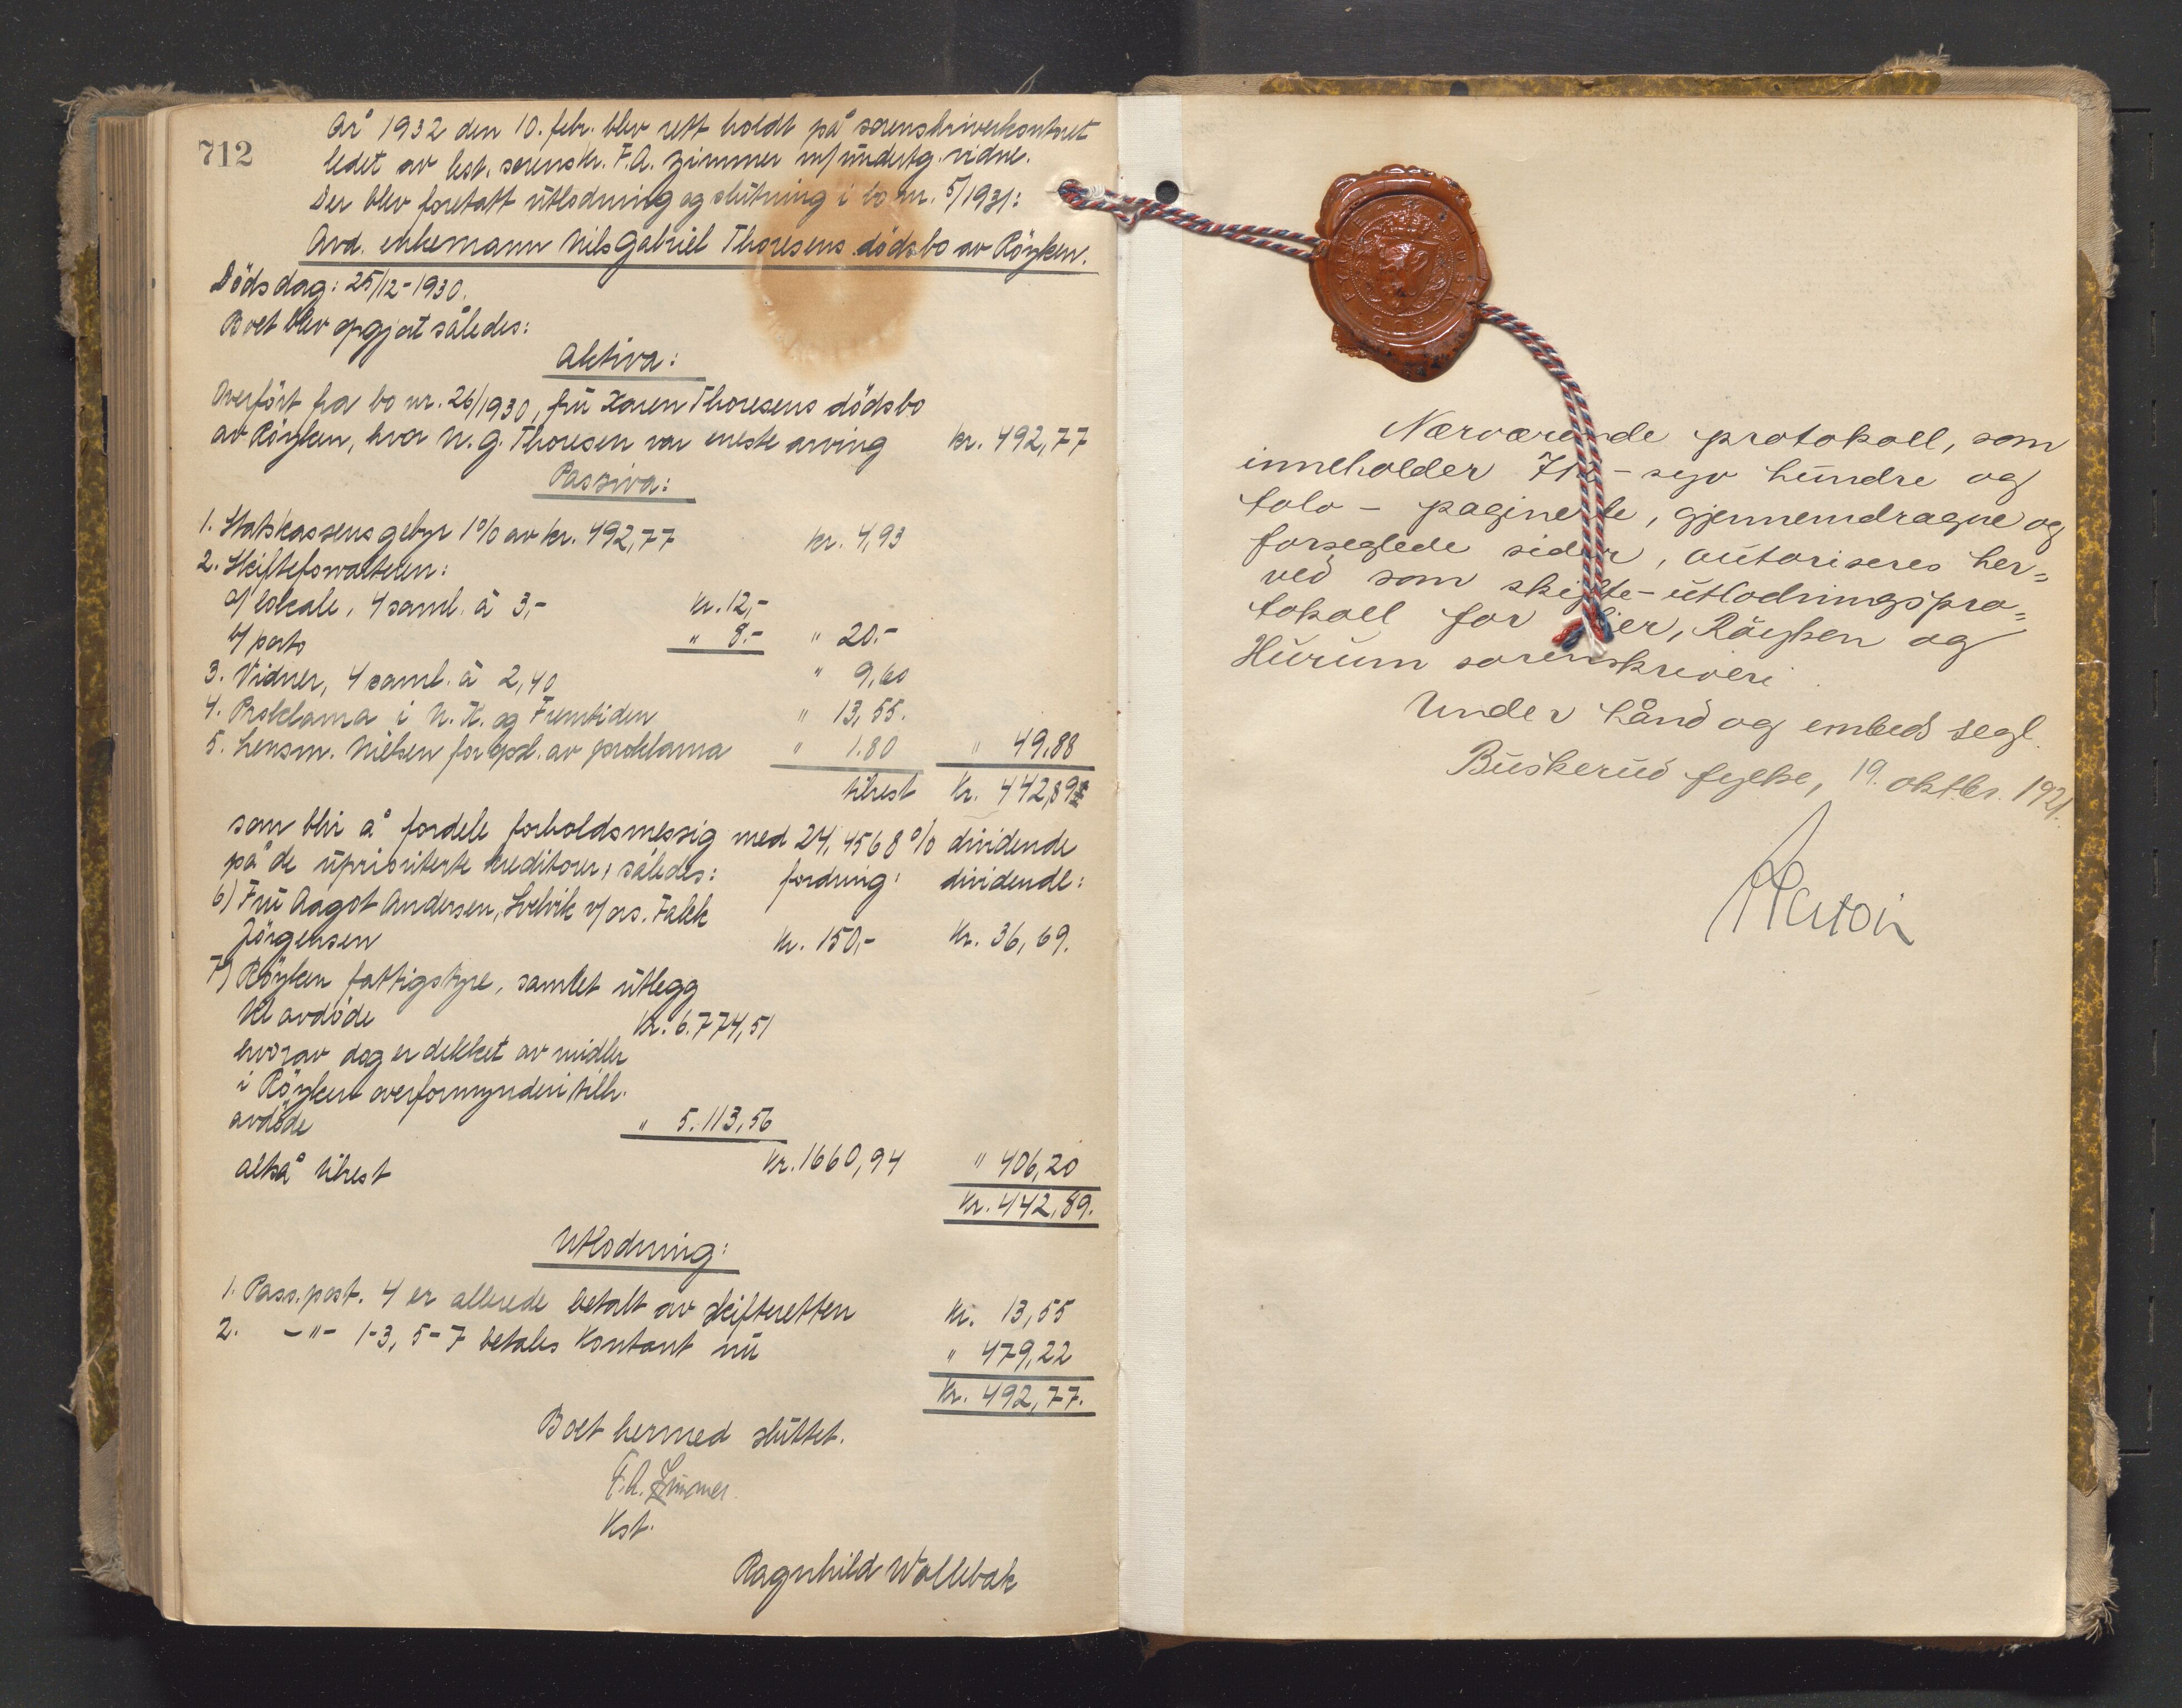 712
År 1932 den 10. febr. blev rett holdt på sorenskriverkontoret
ledet av kst. sorenskr. F.A. Zimmer m/undertg. vidne.
Der blev foretatt utlodning og slutning i bo nr. 5/1931:
Avd. enkemann Nils Gabriel Thoresens dödsbo av Röyken.
Dödsdag: 25/12-1930.
Boet blev opgjort således:
Aktiva:
Overfört fra bo nr. 26/1930, fru Karen Thoresens dödsbo
av Röyken, hvor N. G. Thoresen var eneste arving kr. 492,77
Passiva:
1. Statskassens gebyr 1% av kr. 492,77 kr. 4,93
2. Skifteforvalteren:
a/ lokale, 4 saml. à 3,- kr. 12,-
b/ porto " 8.- " 20.-
3. Vidner, 4 saml. à 2,40 " 9,60
4. Proklama i N. K. og Fremtiden " 13,55.
5. Lensm. Nielsen for opsl. av proklama " 1.80 " 49.88
tilrest kr. 442,89
som blir å fordele forholdsmessig med 24,4568% dividende
på de uprioriterte kreditorer, således: fordring: dividende:
6) Fru Aagot Andersen, Svelvik v/ ors. Falck
Jörgensen kr. 150,- kr. 36,69.
7) Röyken fattigstyre, samlet utlegg
til avdöde kr. 6.774,51
hvorav dog er dekket av midler
i Röyken overformynderi tilh.
avdöde " 5.113,56
altså tilrest kr. 1660,94 " 406,20
kr. 442,89.
Utlodning:
1. Pass.post. 4 er allerede betalt av skifteretten kr. 13,55
2. -"- 1-3, 5-7 betales kontant nu " 479,22
kr. 492,77.
Boet hermed sluttet.
F.A. Zimmer.
Kst.
Ragnhild Wollebæk
Nærværende protokoll, som
inneholder 712 - syv hundre og
tolv - paginerte, gjennemdragne og
forseglede sider, autoriseres her=
ved som skifte-utlodningspro=
tokoll for Lier, Röyken og
Hurum sorenskriveri.
Under hånd og embeds segl.
Buskerud fylke, 19. oktbr. 1921.